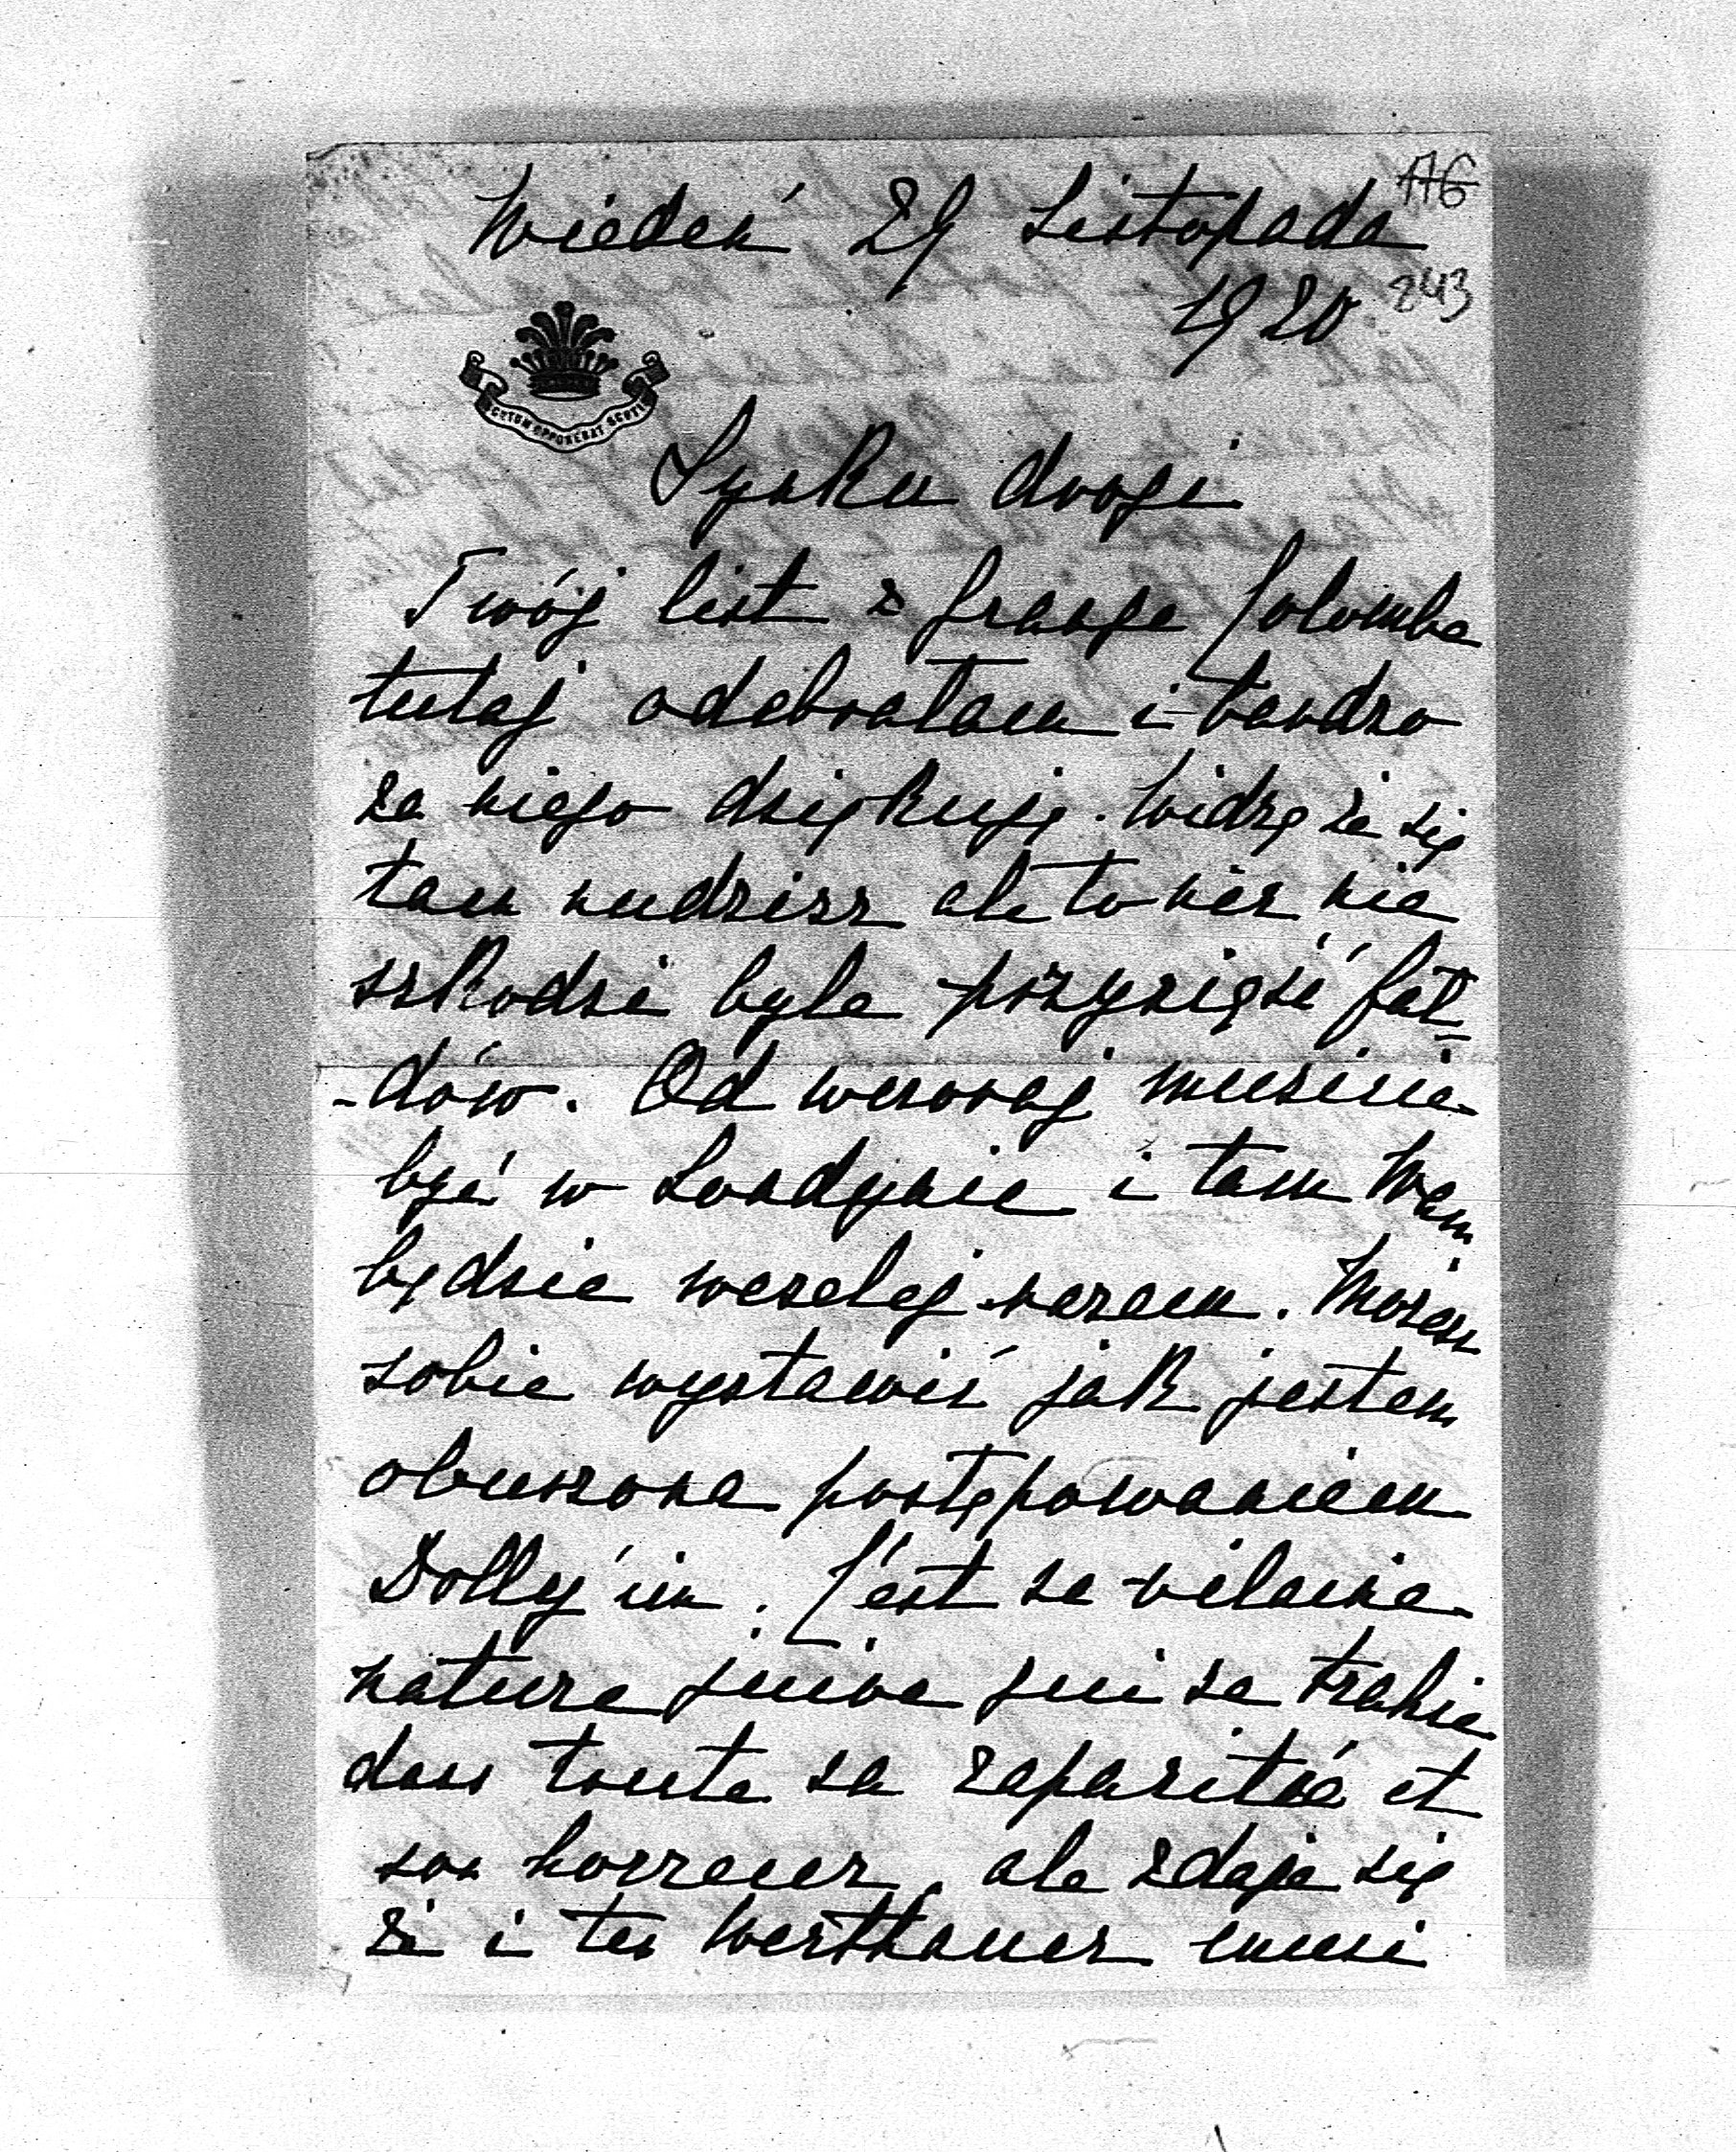 Wiedeń 29 Listopada
116
1920
243
Synku drogi
Twój list z Grange Colombe
tutaj odebrałam i bardzo
za niego dziękuję. Widzę że się
tam nudzisz ale to nic nie
szkodzi byle przyzięść fał=
-dów. Od wczoraj musicie
być w Londynie i tam Wam
będzie weselej razem. Możesz
sobie wystawić jak jestem
oburzona postępowaniem
Dolly'im. C'est sa vilaine
nature juive qui se trahie
dans toute sa rapacité et
son horreur, ale zdaje się
że i ten Werthauer musi